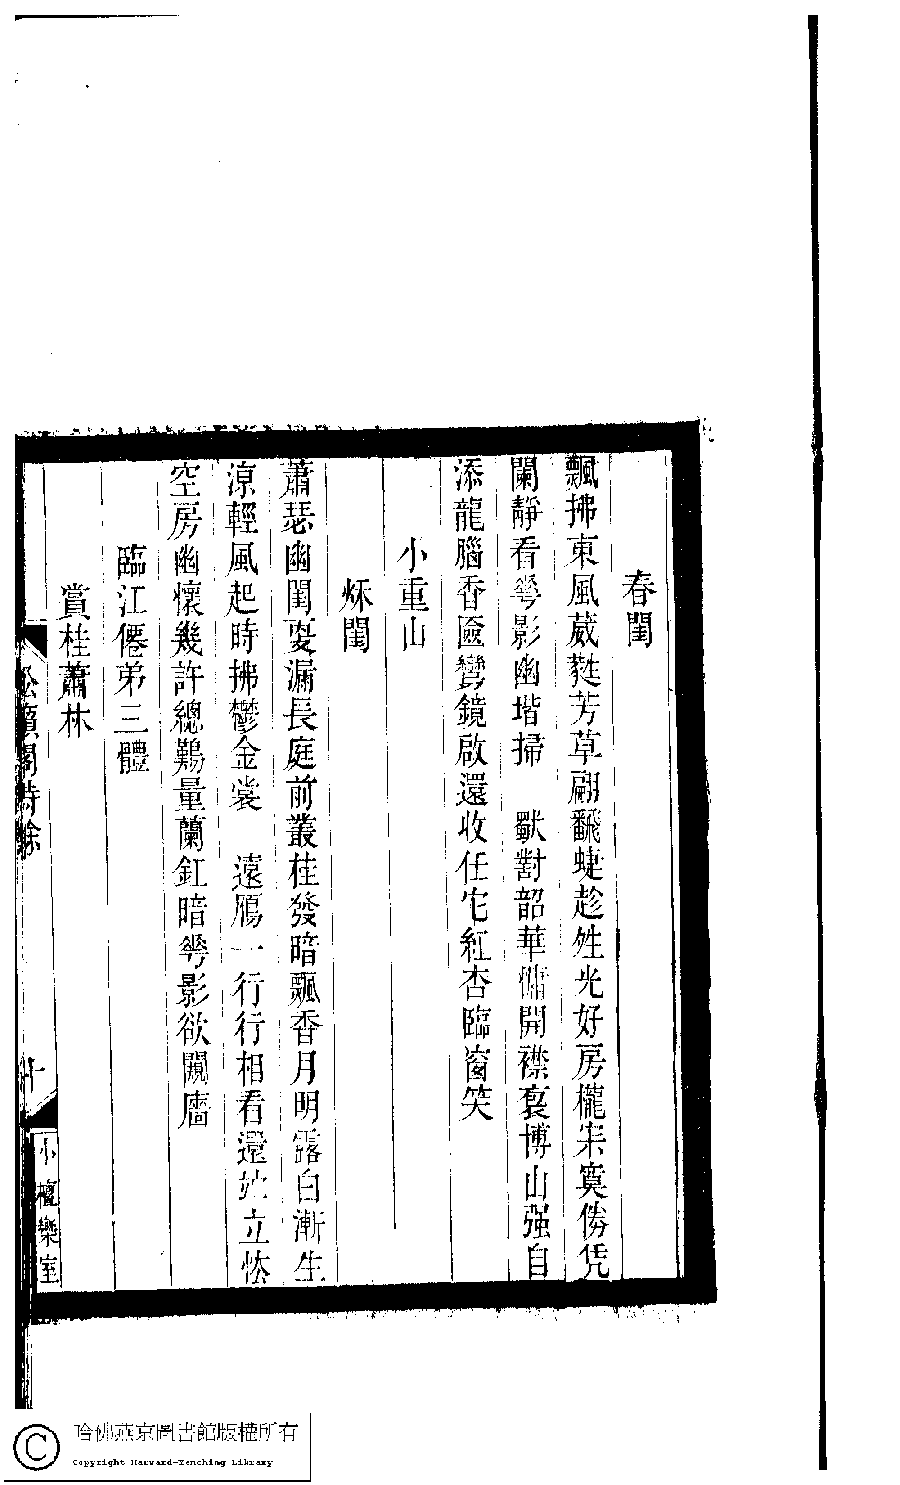 春閨
飄拂東風葳蕤芳草翩飜蜨趁姓光好房櫳宋寞傍凭
闌靜看蕚影幽堦掃　猒對韶華慵開襟褱博山强自
添龍腦香匳鸞鏡啟還收任宅紅杏臨窗笑
小重山
秌閨
蕭瑟幽閨夏漏長庭前叢桂發暗飄香月明露白漸生
涼輕風起時拂鬱金裳　遠鴈一行行相看還竚立恠
空房幽懷幾許總難量蘭釭暗蕚影欲闚廧
臨江僊弟三體
賞桂蕭林
松籟閣詩餘
十
小檀欒室
哈佛燕京圖書館版權所有
Copyright Harvard-Yenching Library